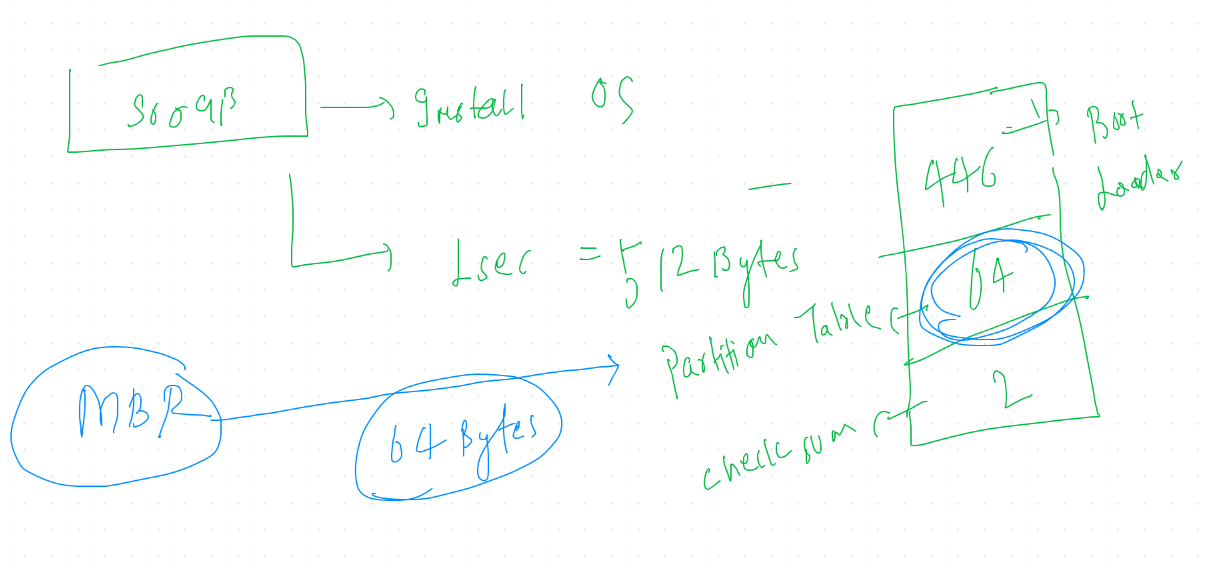 500 GB
Install OS
1 sec = 512 Bytes
446
Boot
Loader
64
Partition Table
2
checksum
MBR
64 Bytes